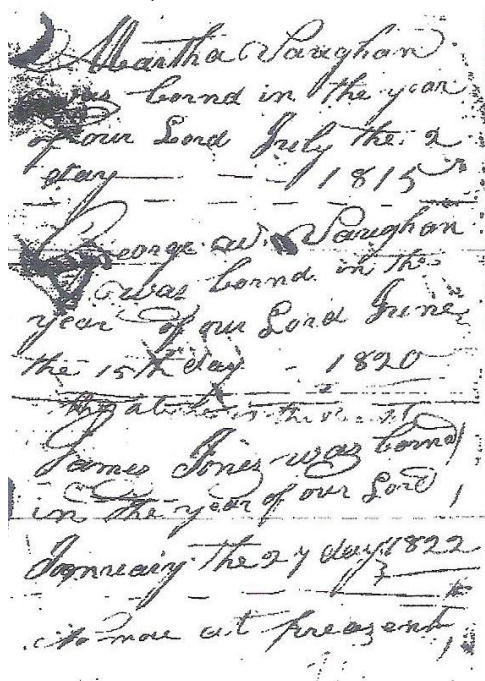 Martha Vaughan
was bornd in the year
of our Lord July the 2
day — — 1815
George W. Vaughan
was bornd in the
year of our Lord June
the 15th day - 1820
James Jones was bornd
in the year of our Lord
Jannuairy the 27 day 1822
No more at preazent